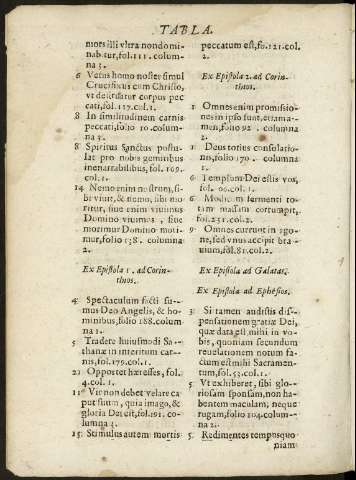 TABLA.
mors illi vltra nondomi-
nabitur, fol. 111. colum-
na 3.
6 Vetus homo noster simul
Crucifixus cum Christo,
vt destruatur corpus pec
cati, fol. 117. col. 1.
8 In similitudinem carnis
peccati, folio 10. colum-
na 3.
8 Spiritus sanctus postu-
lat pro nobis gemitibus
inenarrabilibus, fol. 169.
col. 1.
14 Nemo enim nostrum, si-
bi viuit, & nemo, sibi mo
ritur, siue enim viuimus
Domino viuimus, siue
morimur Domino mori-
mur, folio 138. columna
2.
Ex Epistola 1. ad Corin-
thios.
4 Spectaculum facti su-
mus Deo Angelis, & ho-
minibus, folio 188. colum
na 1.
5 Tradere huiusmodi Sa-
thanæ in interitum car-
nis, fol. 179. col. 1.
21 Oppostet hæreses, fol.
4. col. 1.
11 Vir non debet velare ca
put suum, quia imago, &
gloria Dei est, fol. 191. co-
lumna 3.
15 Stimulus autem mortis
peccatum est, fo. 121. col.
2.
Ex Epistola 2. ad Corin-
thios.
1 Omnes enim promissio-
nes in ipso sunt, etiam a-
men, folio 92. columna
2.
1 Deus totius consolatio-
nis, folio 170. columna
1.
6 Templum Dei estis vos,
fol. 60. col. 1.
6 Modicum fermenti to-
tam massam corrumpit,
fol. 251. col. 2.
9 Omnes currunt in ago-
ne, sed vnus accipit bra-
uium, fol. 81. col. 2.
Ex Epistola ad Galatas.
Ex Epistola ad Ephesios.
3 Si tamen audistis dis-
pensationem gratiæ Dei,
quæ data est, mihi in vo-
bis, quoniam secundum
reuelationem notum fa-
ctum est mihi Sacramen-
tum, fol. 53. col. 1.
5 Vt exhiberet, sibi glo-
riosam sponsam, non ha-
bentem maculam, neque
rugam, folio 104. colum-
na 2.
5 Redimentes tempus quo-
niam